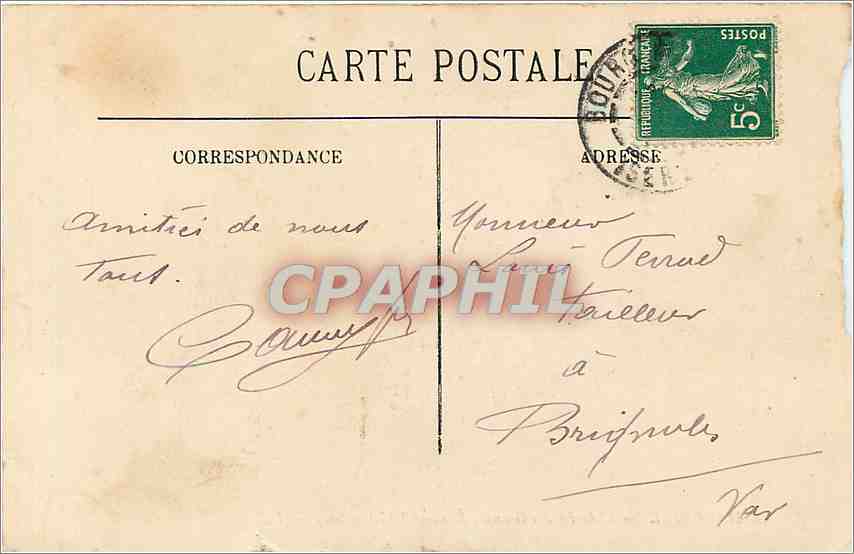 CARTE POSTALE
POSTES
RÉPUBLIQUE FRANÇAISE
5c
BOURG
ISÈRE
CORRESPONDANCE
ADRESSE
Amitiés de nous
tous.
Monsieur
Louis Terrud
tailleur
à
Brignoles
Var
CPAPHIL